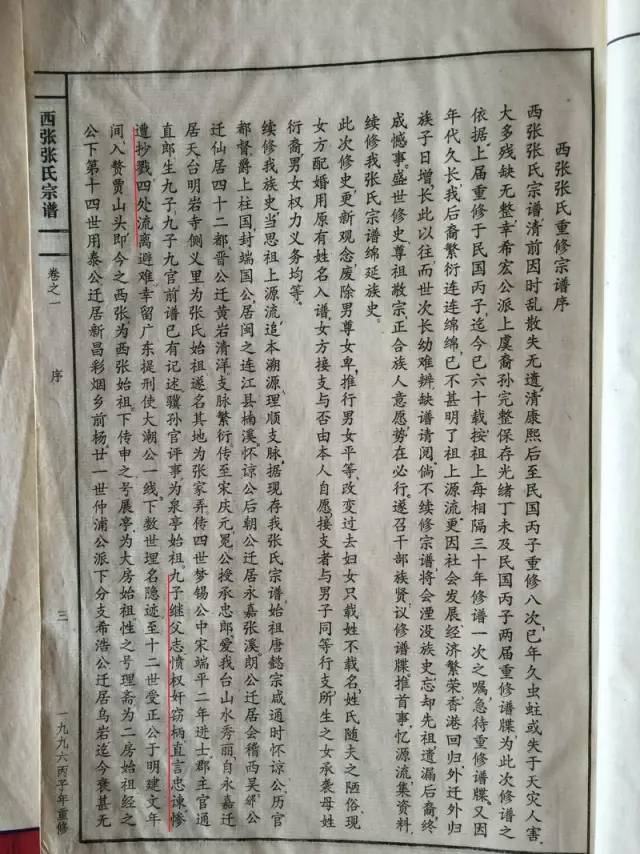 西张张氏重修宗谱序
西张张氏宗谱清前因时乱散失无遗清康熙后至民国丙子重修八次已年久虫蛀或失于天灾人害
大多残缺无整幸希宏公派上虞裔孙完整保存光绪丁未及民国丙子两届重修谱牒为此次修谱之
依据上届重修于民国丙子迄今已六十载按祖上每相隔三十年修谱一次之嘱急待重修谱牒又因
年代久长我后裔繁衍连连绵绵已不甚明了祖上源流更因社会发展经济繁荣香港回归外迁外归
族子日增长此以往而世次长幼难辨缺谱请阅倘不续修宗谱将会湮没族史忘却先祖遗漏后裔终
成憾事盛世修史尊祖敝宗正合族人意愿势在必行遂召干部族贤议修谱牒推首事忆源流集资料
续修我张氏宗谱绵延族史
此次修史更新观念废除男尊女卑推行男女平等改变过去妇女只载姓不载名姓氏随夫之陋俗现
女方配婚用原有姓名入谱女方接支与否由本人自愿接支者与男子同等行支所生之女承袭母姓
衍裔男女权力义务均等
续修我族史当思祖上源流追本溯源理顺支脉据现存我张氏宗谱始祖唐懿宗咸通时怀谅公历官
都督爵上柱国封端国公居闽之连江县楠溪怀谅公后朝公迁居永嘉张溪朗公迁居会稽西吴邻公
迁仙居四十二都晋公迁黄岩清洋支脉繁衍传至宋庆元冕公授承忠郎爱我台山水秀丽自永嘉迁
居天台明岩寺侧义里为张氏始祖遂名其地为张家弄传四世梦锡公中宋端平二年进士郡主官通
直郎生九子九子九官前谱已有记述骥孙官评事为泉亭始祖九子继父志愤权奸窃柄直言忠谏惨
遭抄戮四处流离避难幸留广东提刑使大潮公一线下数世理名隐迹至十二世受正公于明建文年
间入赘贾山头即今之西张为西张始祖下传申之号展亭为大房始祖性之号理斋为二房始祖经之
公下第十四世用泰公迁居新昌彩烟乡前杨廿一世仲浦公派下分支希浩公迁居乌岩迄今衰甚无
西张张氏宗谱
卷之一
序
三
一九九六丙子年重修